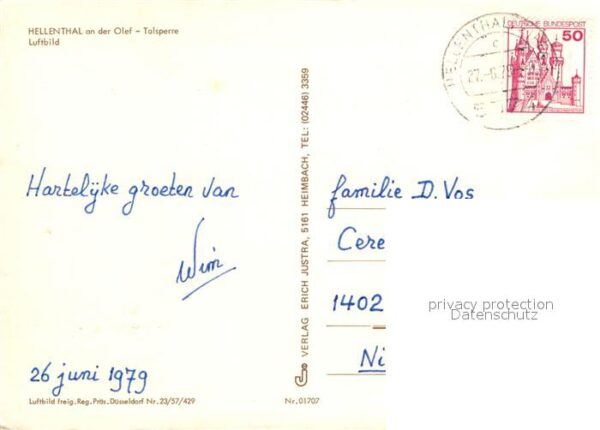 HELLENTHAL an der Olef – Talsperre
Luftbild
HELLENTHAL
c
27.-6.79
DEUTSCHE BUNDESPOST
50
Hartelijke groeten van
Wim
26 juni 1979
Luftbild freig. Reg. Präs. Düsseldorf Nr. 23/57/429
Nr. 01707
VERLAG ERICH JUSTRA, 5161 HEIMBACH, TEL: (02446) 3359
familie D. Vos
Cere
1402
Ni
privacy protection
Datenschutz